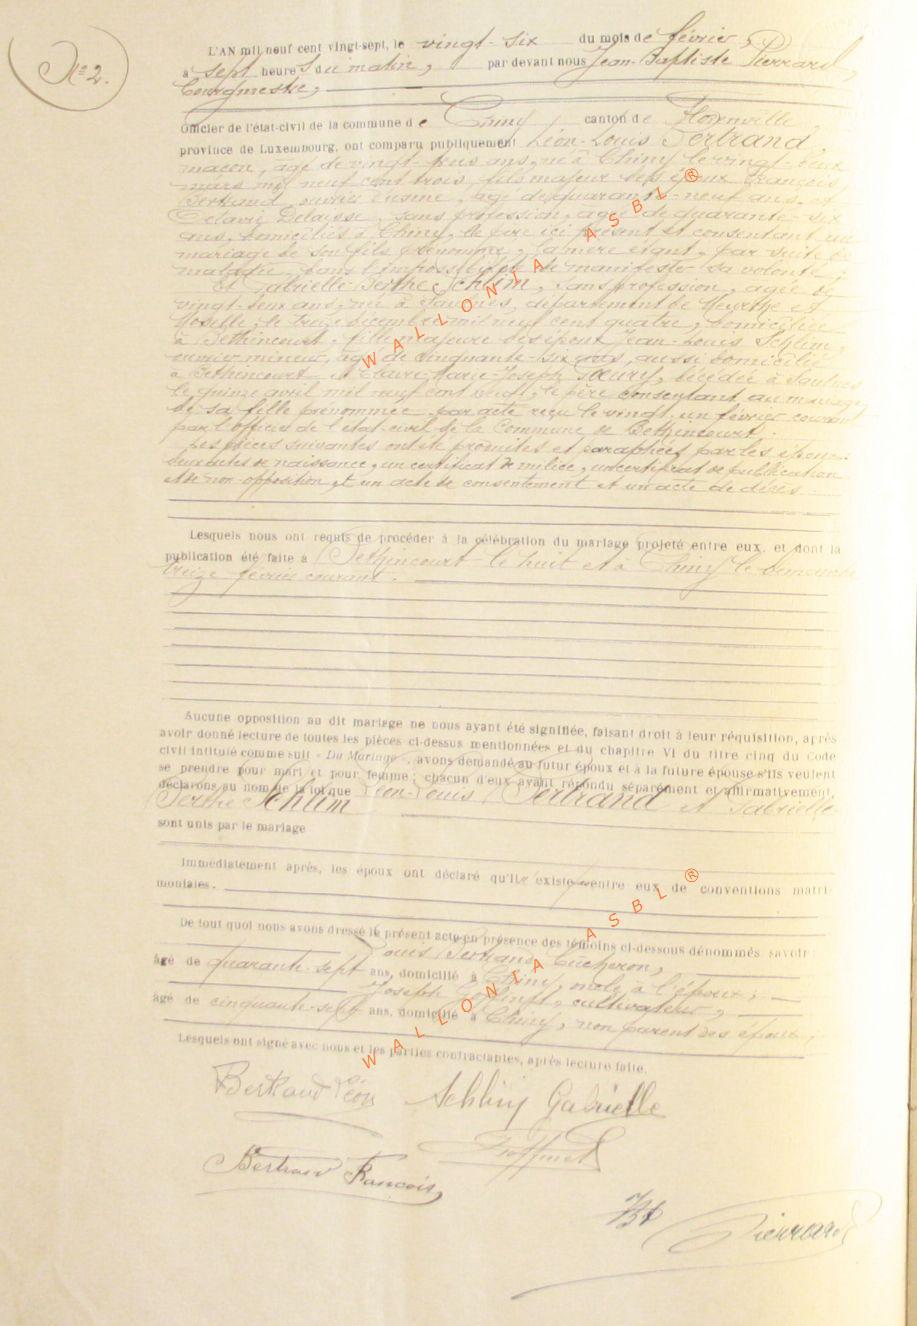 N° 2.
L'AN mil neuf cent vingt-sept, le vingt-six du mois de février,
à sept heures du matin, par devant nous Jean-Baptiste Pierrard,
bourgmestre,
Officier de l'état-civil de la commune de Chiny canton de Florenville,
province de Luxembourg, ont comparu publiquement Léon-Louis Bertrand,
maçon, âgé de vingt-trois ans, né à Chiny le vingt-deux
mars mil neuf cent trois, fils majeur des époux François
Bertrand, ouvrier d'usine, âgé de quarante-neuf ans, et
Octavie Delaisse, sans profession, âgée de quarante-six
ans, domiciliés à Chiny, le père ici présent et consentant au
mariage de son fils prénommé, la mère étant, par suite de
maladie, dans l'impossibilité de manifester sa volonté;
Et Gabrielle-Berthe Schlim, sans profession, âgée de
vingt-deux ans, née à Saulnes, département de Meurthe et
Moselle, le treize décembre mil neuf cent quatre, domiciliée
à Bethincourt, fille majeure des époux Jean-Louis Schlim,
ouvrier mineur, âgé de cinquante-six ans, aussi domicilié
à Bethincourt et Claire-Marie-Joseph, décédée à Saulnes
le quinze avril mil neuf cent vingt, le père consentant au mariage
de sa fille prénommée par acte reçu le vingt-un février courant
par l'officier de l'état-civil de la Commune de Bethincourt.
Les pièces suivantes ont été produites et paraphées par les époux:
deux actes de naissance, un certificat de milice, un certificat de publication
et de non-opposition, et un acte de consentement et un acte de décès.
Lesquels nous ont requis de procéder à la célébration du mariage projeté entre eux, et dont la
publication été faite à Bethincourt le huit et à Chiny le dimanche
treize février courant.
Aucune opposition au dit mariage ne nous ayant été signifiée, faisant droit à leur réquisition, après
avoir donné lecture de toutes les pièces ci-dessus mentionnées et du chapitre VI du titre cinq du Code
civil intitulé comme suit « Du Mariage », avons demandé au futur époux et à la future épouse s'ils veulent
se prendre pour mari et pour femme ; chacun d'eux ayant répondu séparément et affirmativement,
déclarons au nom de la loi que Léon-Louis Bertrand et Gabrielle-
Berthe Schlim
sont unis par le mariage
Immédiatement après, les époux ont déclaré qu'il n'existe pas entre eux de conventions matri-
moniales.
De tout quoi nous avons dressé le présent acte en présence des témoins ci-dessous dénommés savoir :
Louis Bertrand, bûcheron,
âgé de quarante-sept ans, domicilié à Chiny, oncle à l'époux,
Joseph Goffinet, cultivateur,
âgé de cinquante-sept ans, domicilié à Chiny, non parent des époux,
Lesquels ont signé avec nous et les parties contractantes, après lecture faite.
Bertrand Léon Schlim Gabrielle
Goffinet
Bertrand François
Pierrard
WALLONIA ASBL ®
WALLONIA ASBL ®